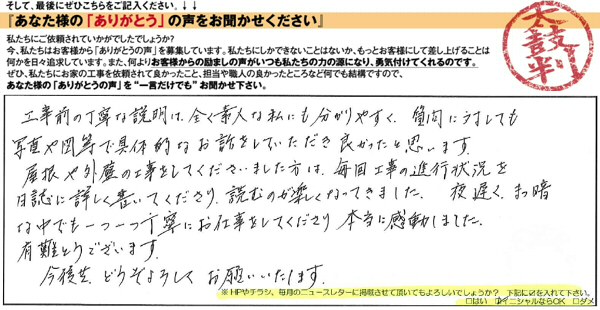 そして、最後にぜひこちらをご記入ください。↓↓
『あなた様の「ありがとう」の声をお聞かせください』
私たちにご依頼されていかがでしたでしょうか?
今、私たちはお客様から「ありがとうの声」を募集しています。私たちにしかできないことはないか、もっとお客様にして差し上げることは
何かを日々追求しています。また、何よりお客様からの励ましの声がいつも私たちの力の源になり、勇気付けてくれるのです。
ぜひ、私たちにお家の工事を依頼されて良かったこと、担当や職人の良かったところなど何でも結構ですので、
あなた様の「ありがとうの声」を"一言だけでも"お聞かせ下さい。
太鼓判
工事前の丁寧な説明は、全く素人な私にも分かりやすく、質問にうすしても
写真や図等で具体的なお話をしていただき良かったと思います。
屋根や外壁の工事をしてくださいました方は、毎回工事の進行状況を
日誌に詳しく書いてくださり、読むのが楽しくなってきました。 夜遅く、まっ暗
な中でも一つ一つ丁寧にお仕事をしてくださり本当に感動しました。
有難とうございます。
今後を、どうぞよろしくお願いいたします。
※HPやチラシ、毎月のニュースレターに掲載させて頂いてもよろしいでしょうか? 下記に☑を入れて下さい。
□はい ☑イニシャルならOK □ダメ